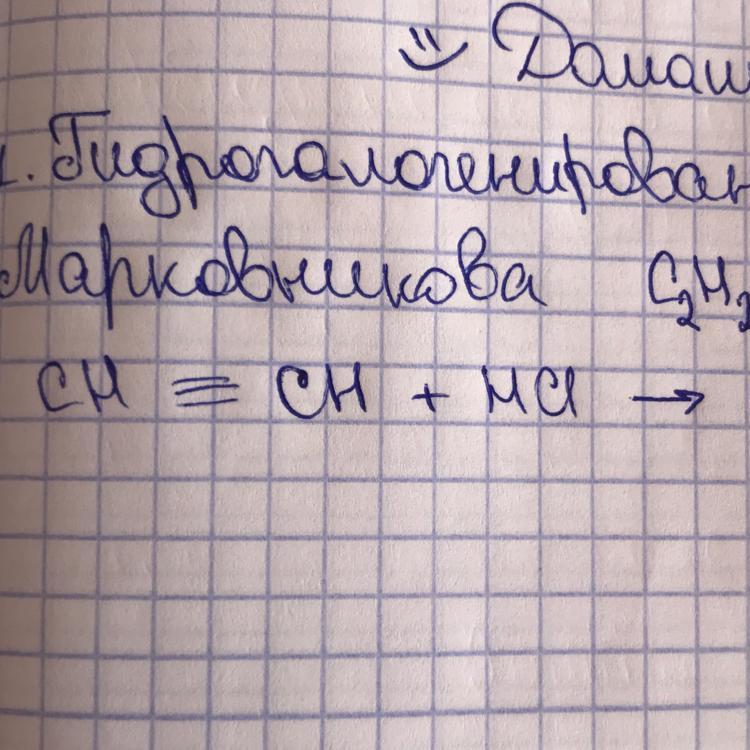 Домаш
1. Гидрогалогенирован
Марковникова C₂H₂
CH ≡ CH + HCl →